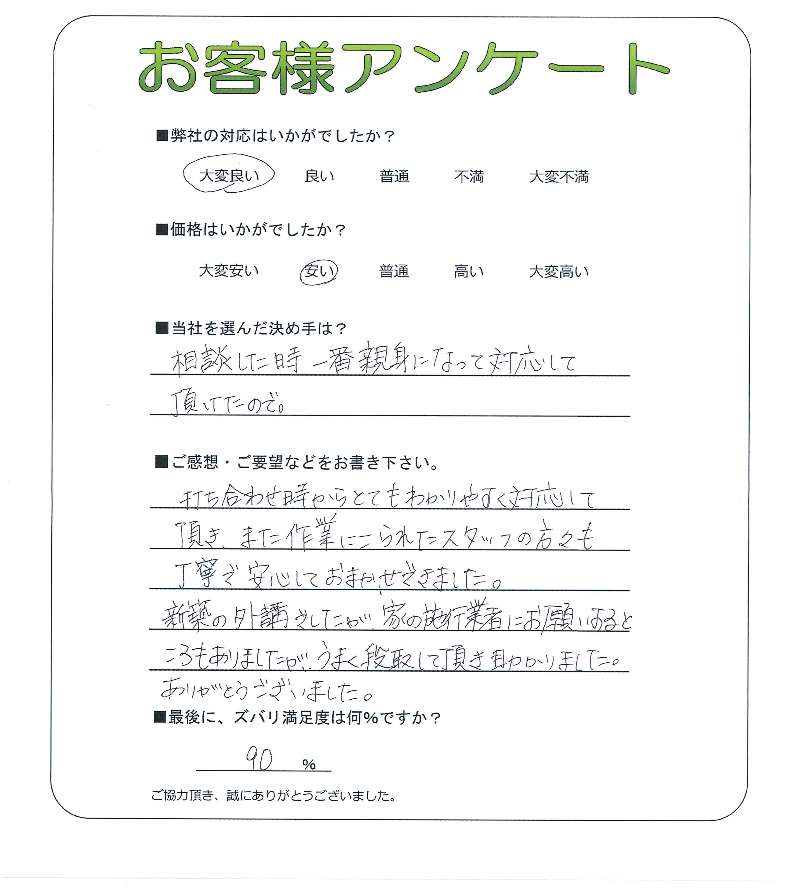 お客様アンケート
■弊社の対応はいかがでしたか？
大変良い 良い 普通 不満 大変不満
■価格はいかがでしたか？
大変安い 安い 普通 高い 大変高い
■当社を選んだ決め手は？
相談した時一番親身になって対応して
頂けたので。
■ご感想・ご要望などをお書き下さい。
打ち合わせ時からとてもわかりやすく対応して
頂き、また作業にこられたスタッフの方々も
丁寧で安心しておまかせできました。
新築の外講でしたが、家の施行業者にお願いあると
ころもありましたが、うまく段取して頂き助かりました。
ありがとうございました。
■最後に、ズバリ満足度は何%ですか？
90 %
ご協力頂き、誠にありがとうございました。